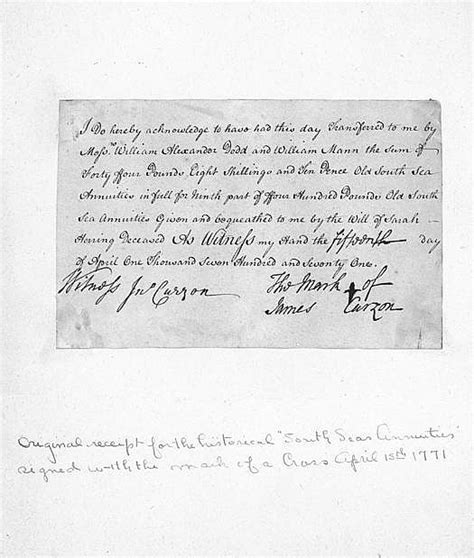 I Do hereby acknowledge to have had this day Transferred to me by
Mess.rs William Alexander Dodd and William Mann the Sum of
Forty ffour Pounds Eight Shillings and Ten Pence Old South Sea
Annuities in full for Ninth part of ffour Hundred Pounds Old South
Sea Annuities Given and Bequeathed to me by the Will of Sarah
Herring Deceased As Witness my Hand the fifteenth day
of April One Thousand Seven Hundred and Seventy One.
Witness Jno Curzon The Mark + of
James Curzon
Original receipt for the historical "South Seas Annuities"
signed with the mark of a Cross April 15th 1771